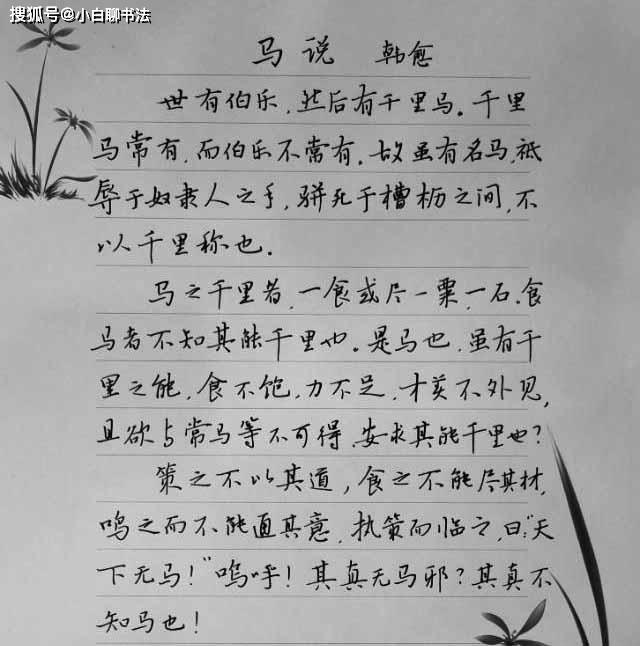 搜狐号@小白聊书法
马说 韩愈
世有伯乐，然后有千里马。千里
马常有，而伯乐不常有。故虽有名马，祗
辱于奴隶人之手，骈死于槽枥之间，不
以千里称也。
马之千里者，一食或尽一粟，一石。食
马者不知其能千里也。是马也，虽有千
里之能，食不饱，力不足，才美不外见，
且欲与常马等不可得，安求其能千里也？
策之不以其道，食之不能尽其材，
鸣之而不能通其意，执策而临之，曰：“天
下无马！”呜呼！其真无马邪？其真不
知马也！